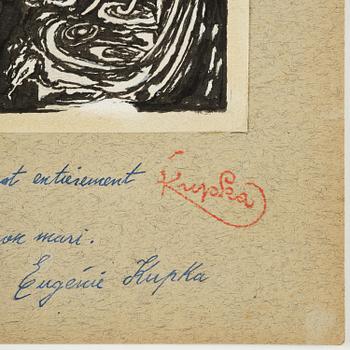 est entièrement Kupka
mon mari.
Eugénie Kupka